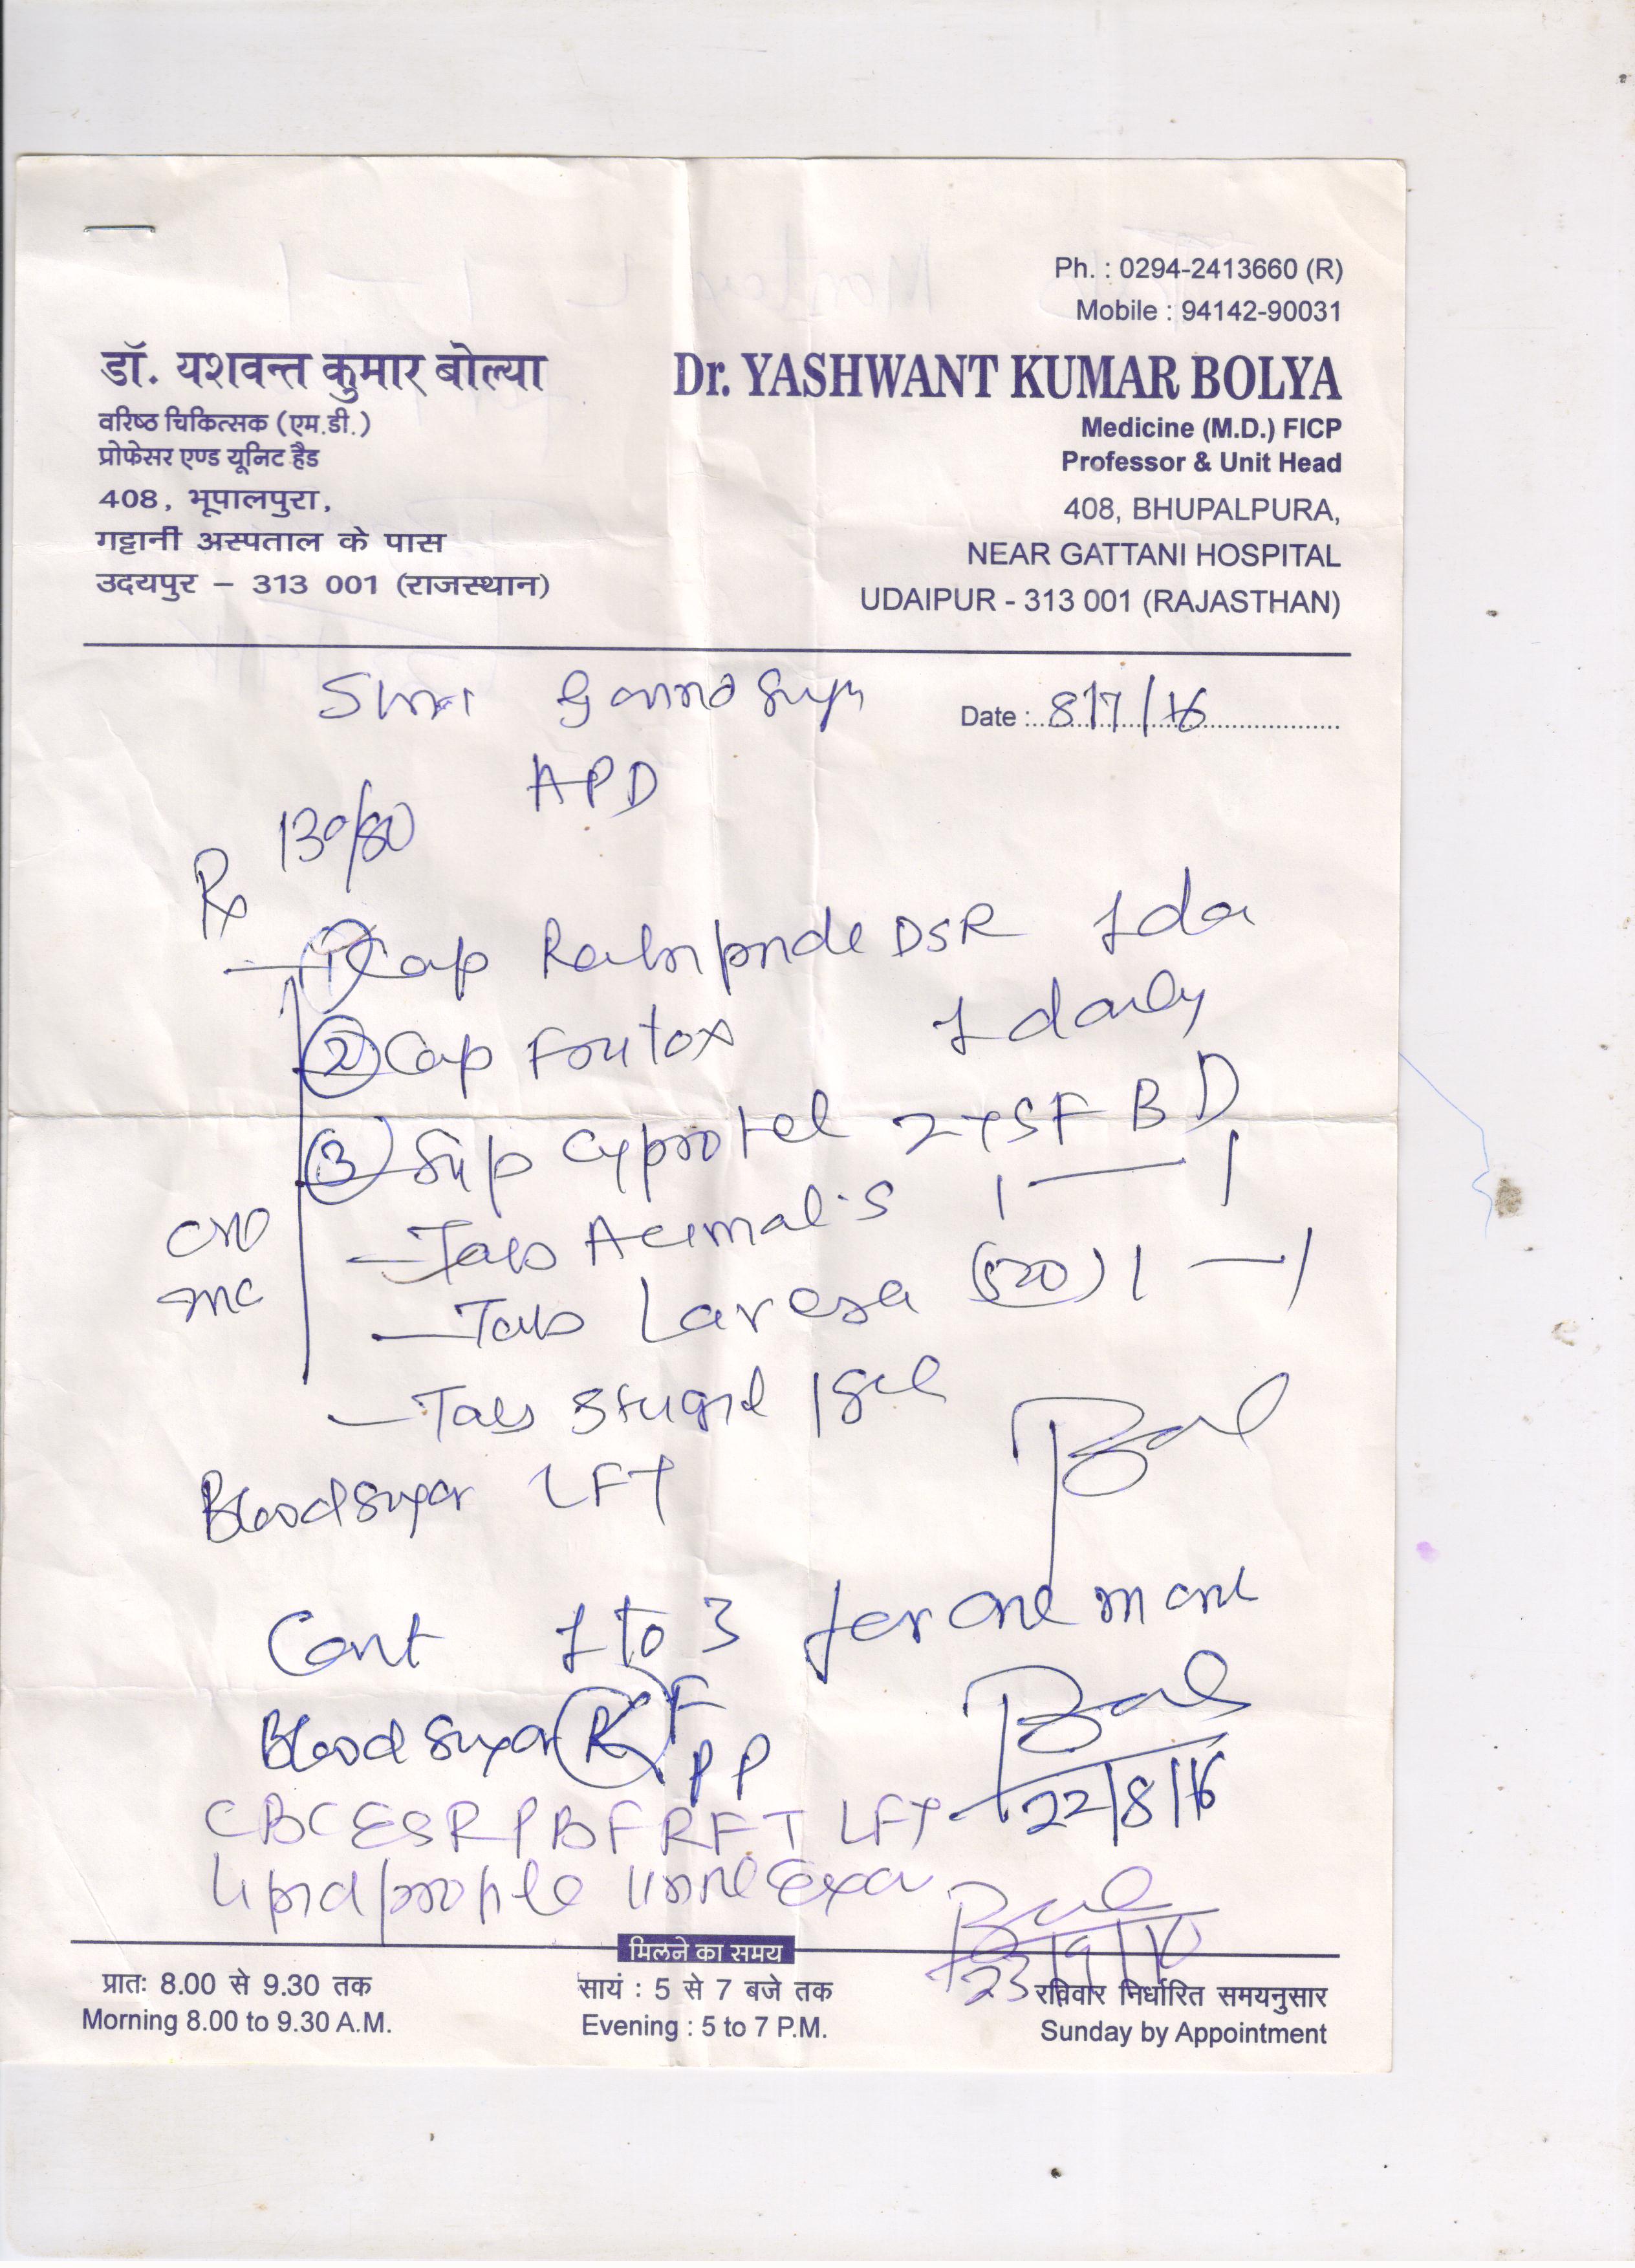 Ph. : 0294-2413660 (R)
Mobile : 94142-90031
डॉ. यशवन्त कुमार बोल्या
वरिष्ठ चिकित्सक (एम.डी.)
प्रोफेसर एण्ड यूनिट हैड
408, भूपालपुरा,
गट्टानी अस्पताल के पास
उदयपुर – 313 001 (राजस्थान)
Dr. YASHWANT KUMAR BOLYA
Medicine (M.D.) FICP
Professor & Unit Head
408, BHUPALPURA,
NEAR GATTANI HOSPITAL
UDAIPUR - 313 001 (RAJASTHAN)
Date : 8/7/16
APD
130/80
Rx
① Cap DSR 1 da
② Cap 1 daily
③ Syp 2 TSF BD
Tab 1 — 1
Tab 1 — 1
Tab
Blood sugar LFT
Cont 1 to 3 for one
Blood sugar R F
PP
22/8/16
CBC ESR PBF RFT LFT
Lipid profile Urine Exa
मिलने का समय
प्रातः 8.00 से 9.30 तक
Morning 8.00 to 9.30 A.M.
सायं : 5 से 7 बजे तक
Evening : 5 to 7 P.M.
रविवार निर्धारित समयनुसार
Sunday by Appointment